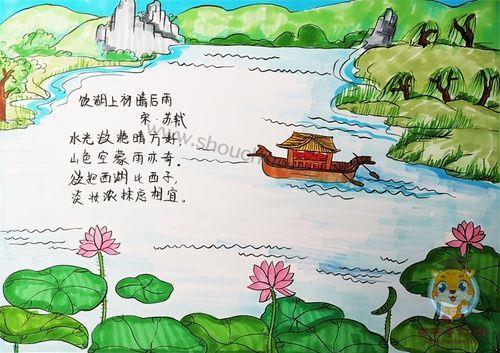 饮湖上初晴后雨
宋·苏轼
水光潋滟晴方好,
山色空蒙雨亦奇。
欲把西湖比西子,
淡妆浓抹总相宜。